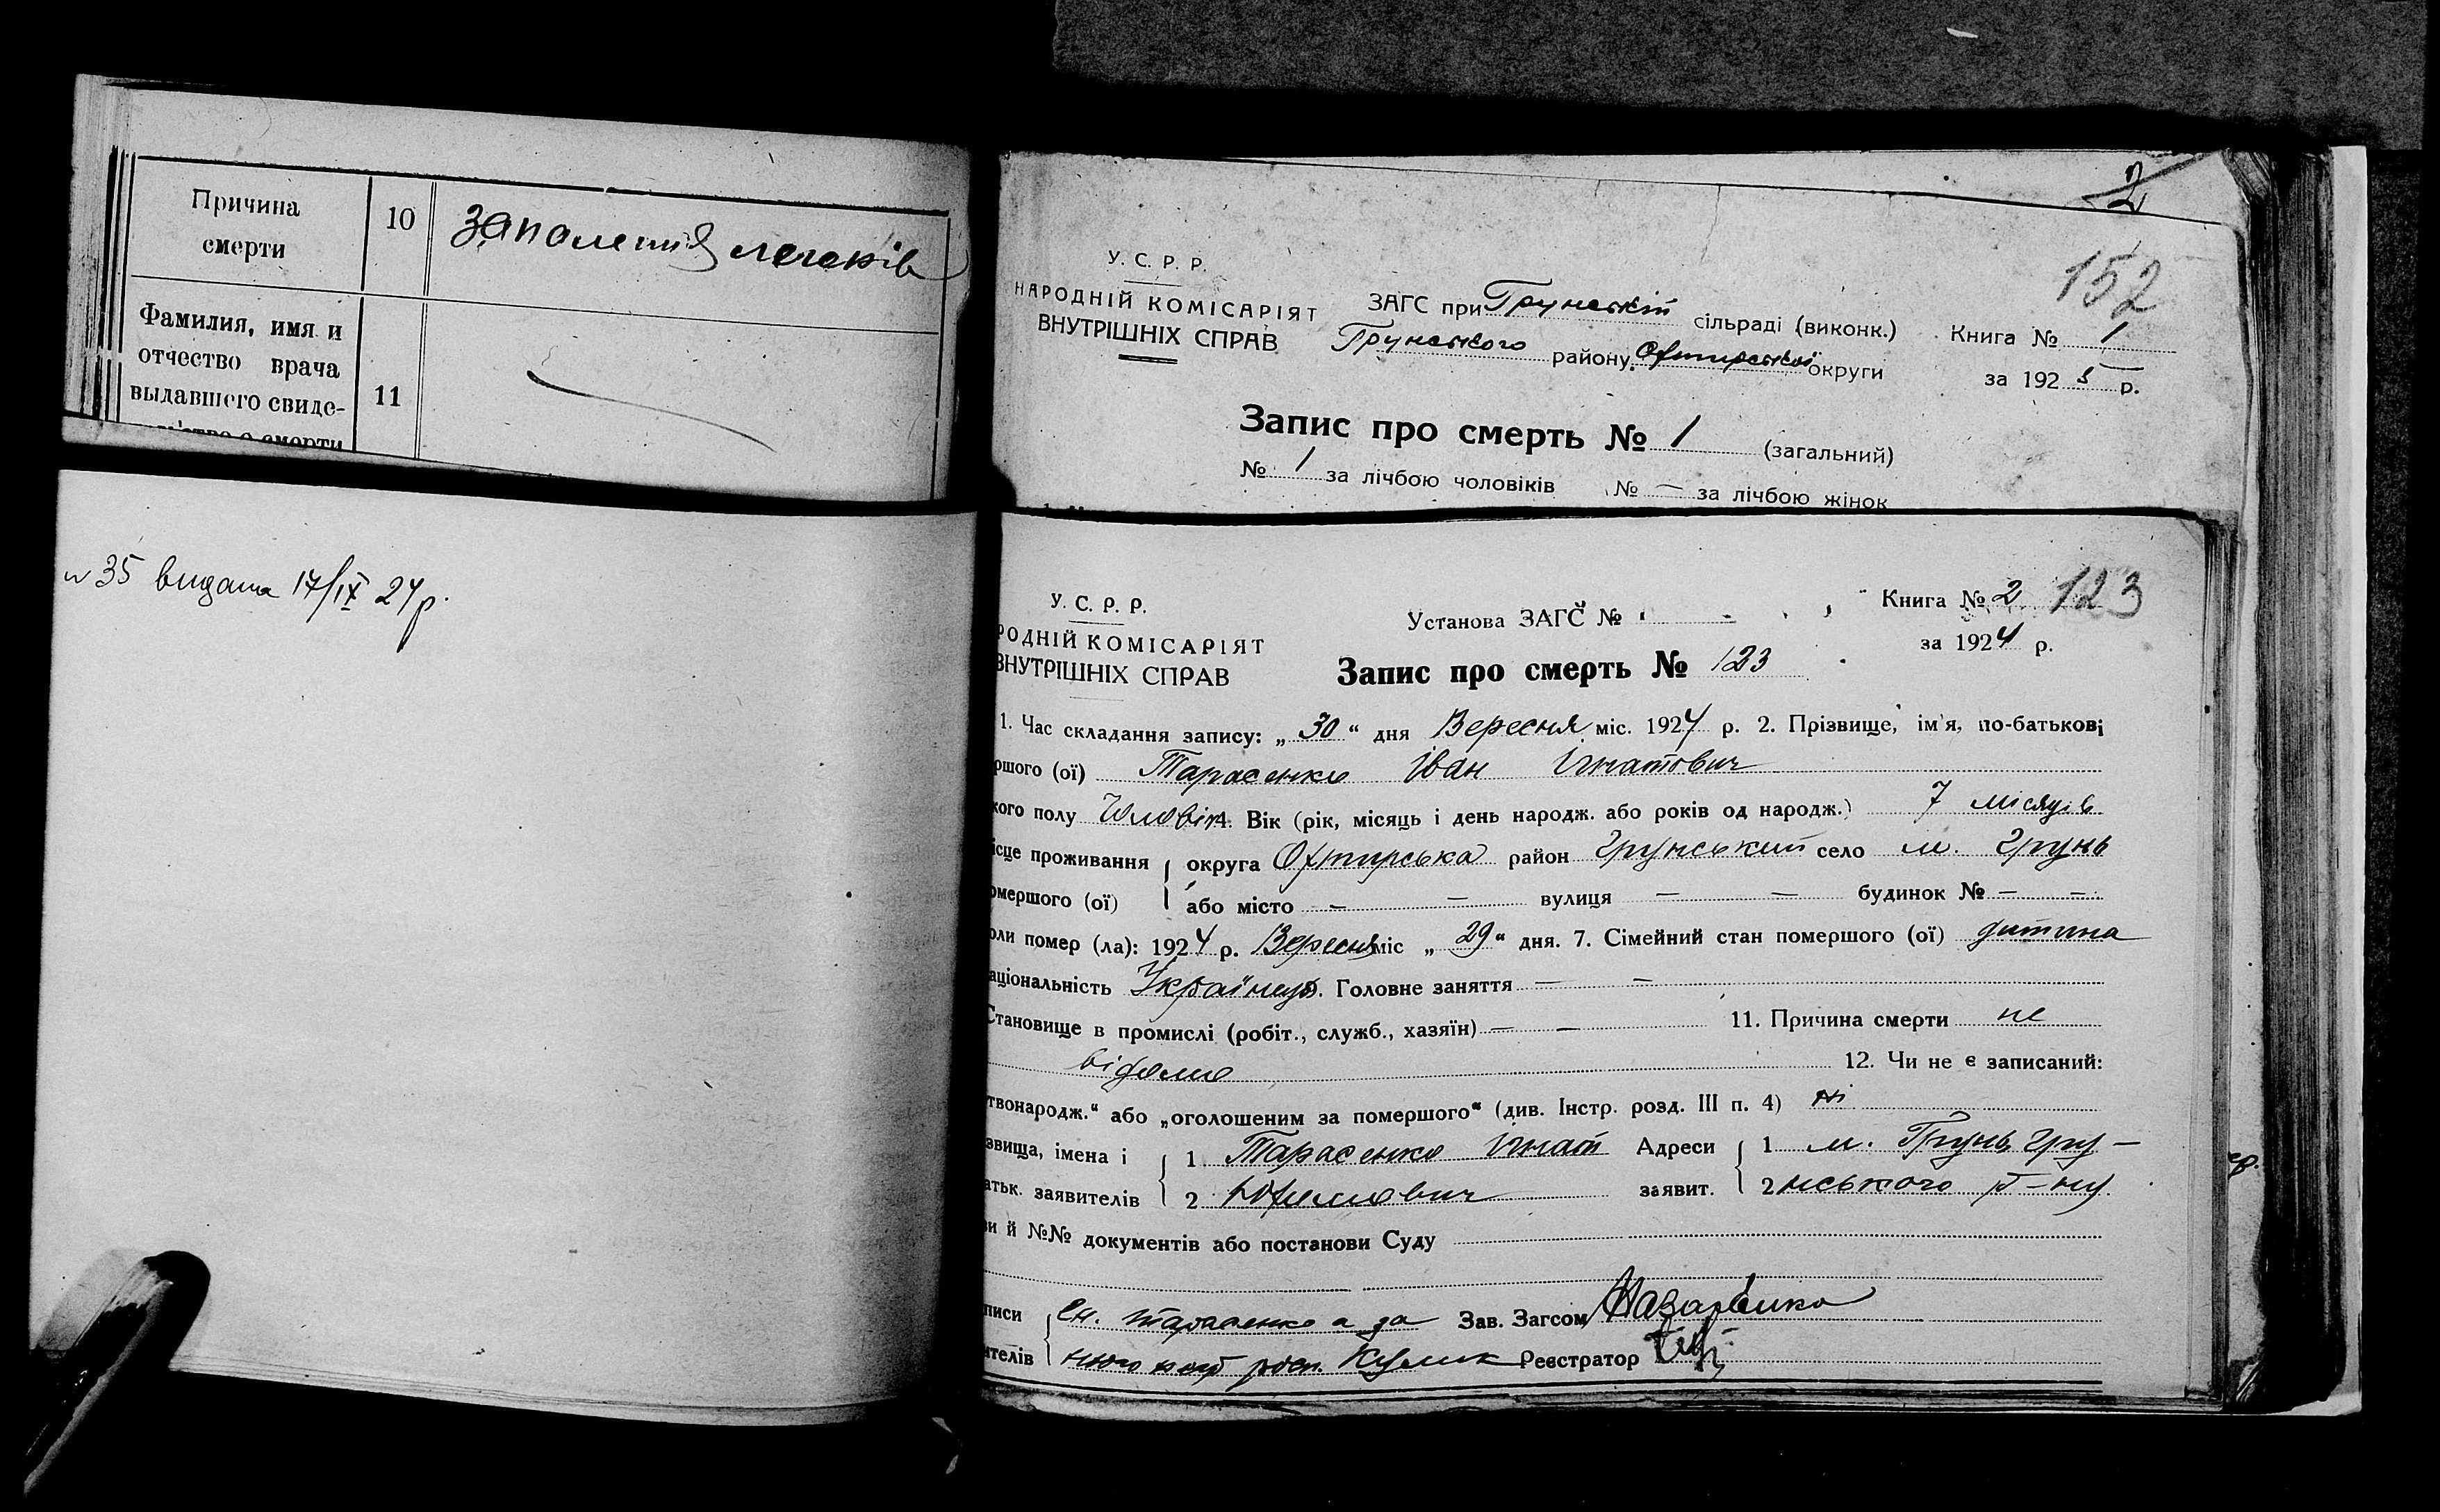 Причина
смерти
10
запаления легенів
Фамилия, имя и
отчество врача
выдавшего свиде-
тельство о смерти
11
№ 35 видана 17/IX 24 р.
2
152
У. С. Р. Р.
НАРОДНІЙ КОМІСАРІЯТ
ВНУТРІШНІХ СПРАВ
ЗАГС при Грунський сільраді (виконк.)
Грунського району Охтирської округи
Книга № 1
за 1925 р.
Запис про смерть № 1 (загальний)
№ 1 за лічбою чоловіків № — за лічбою жінок
У. С. Р. Р.
РОДНІЙ КОМІСАРІЯТ
ВНУТРІШНІХ СПРАВ
Установа ЗАГС №
Книга № 2 123
за 1924 р.
Запис про смерть № 123
1. Час складання запису: „ 30 “ дня Вересня міс. 1924 р. 2. Прізвище, ім'я, по-батькові
ршого (ої) Тарасенко Іван Ігнатович
кого полу Чоловіч. Вік (рік, місяць і день народж. або років од народж.) 7 місяців
ісце проживання округа Охтирська район Грунський село м. Грунь
омершого (ої) або місто — — вулиця — — будинок № — —
оли помер (ла): 1924 р. Вересня міс „ 29 “ дня. 7. Сімейний стан помершого (ої) дитина
аціональність Українець. Головне заняття — —
Становище в промислі (робіт., служб., хазяїн) — — 11. Причина смерти не
відомо 12. Чи не є записаний:
твонародж.“ або „оголошеним за помершого“ (див. Інстр. розд. III п. 4) ні
звища, імена і 1 Тарасенко Ігнат Адреси 1 м. Грунь Гру-
атьк. заявителів 2 Юхимович заявит. 2 нського р-ну.
ви й №№ документів або постанови Суду
писи Гн. Тарасенко а за Зав. Загсом Назаренко
ителів нього Кулик Реєстратор